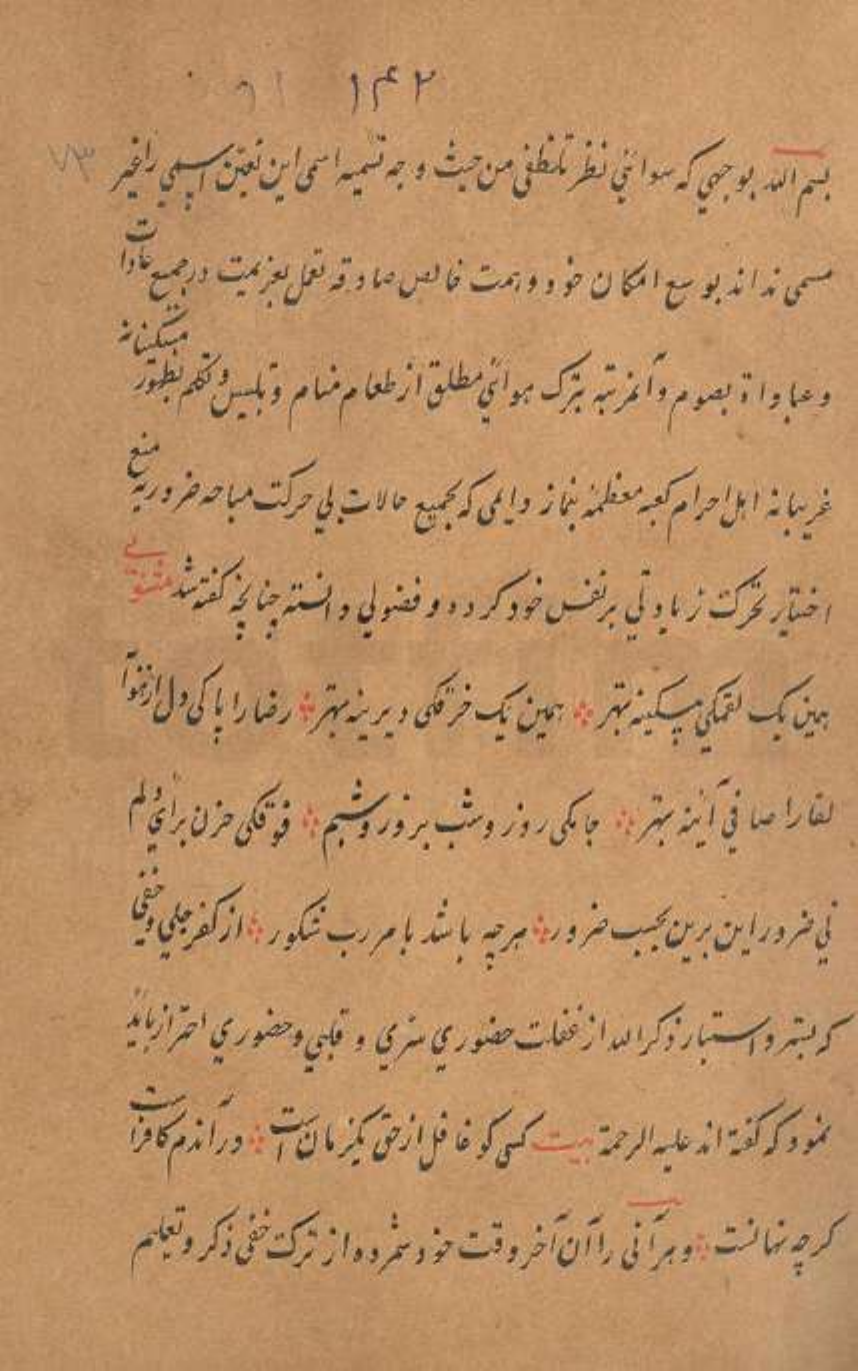 ۱۴۲ ۶۱
۷۳
بسم الله بوجهي كه سوائي نظر تلفظي من حيث وجه تسميه اسمي اين تعين اسمي را غير
مسمی نداند بوسع امکان خود و همت خالص صادقه تعمل بعزیمت در جمیع عادات
و عباداة بصوم و آنمرتبه بترک هوائي مطلق از طعام منام و تلبیس و تکلم بطور مسکینانه
غریبانه اهل احرام کعبه معظمه بنماز دایمی که بجمیع حالات بي حرکت مباحه ضروریه منع
اختیار تحرکت زیادتي بر نفس خود کرده و فضولي دانسته چنانچه گفته شد مثنوي
همین یک لقمکي مسکینه بهتر همین یک خرقکی دیرینه بهتر رضا را پاکی دل از
لقا را صافي آئینه بهتر جامکی روز و شب بروز و شبم قوتکی حزن براي دلم
ني ضرور این برین بحسب ضرور هرچه باشد بامر رب شکور از کفر جلي و خفي
که بستر و استبار ذکر الله از غفلت حضوري سري و قلبي و حضوري احتراز باید
نمود که گفته اند علیه الرحمة بیت کسی کو غافل از حق یکزمان است در آندم کافر است
گرچه نهانست و هر آنی را آن آخر وقت خود شمرده از ترکت خفي ذکر و تعلیم